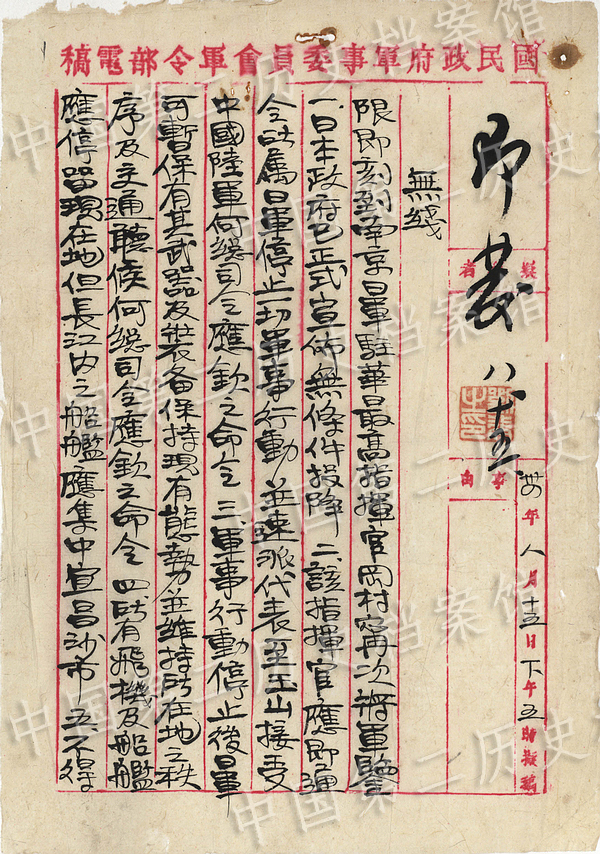 國民政府軍事委員會軍令部電稿
年八月十五日下午五時擬稿
事由
即發 八、十五
無綫
限即刻到南京日軍駐華最高指揮官岡村寧次將軍鑒
一、日本政府已正式宣佈無條件投降 二、該指揮官應即通
令所屬日軍停止一切軍事行動並速派代表至玉山接受
中國陸軍何總司令應欽之命令 三、軍事行動停止後日軍
可暫保有其武器及裝备保持現有態勢並維持所在地之秩
序及交通聽候何總司令應欽之命令 四、所有飛機及船艦
應停留現在地但長江內之船艦應集中宜昌沙市 五、不得
中国第二历史档案馆